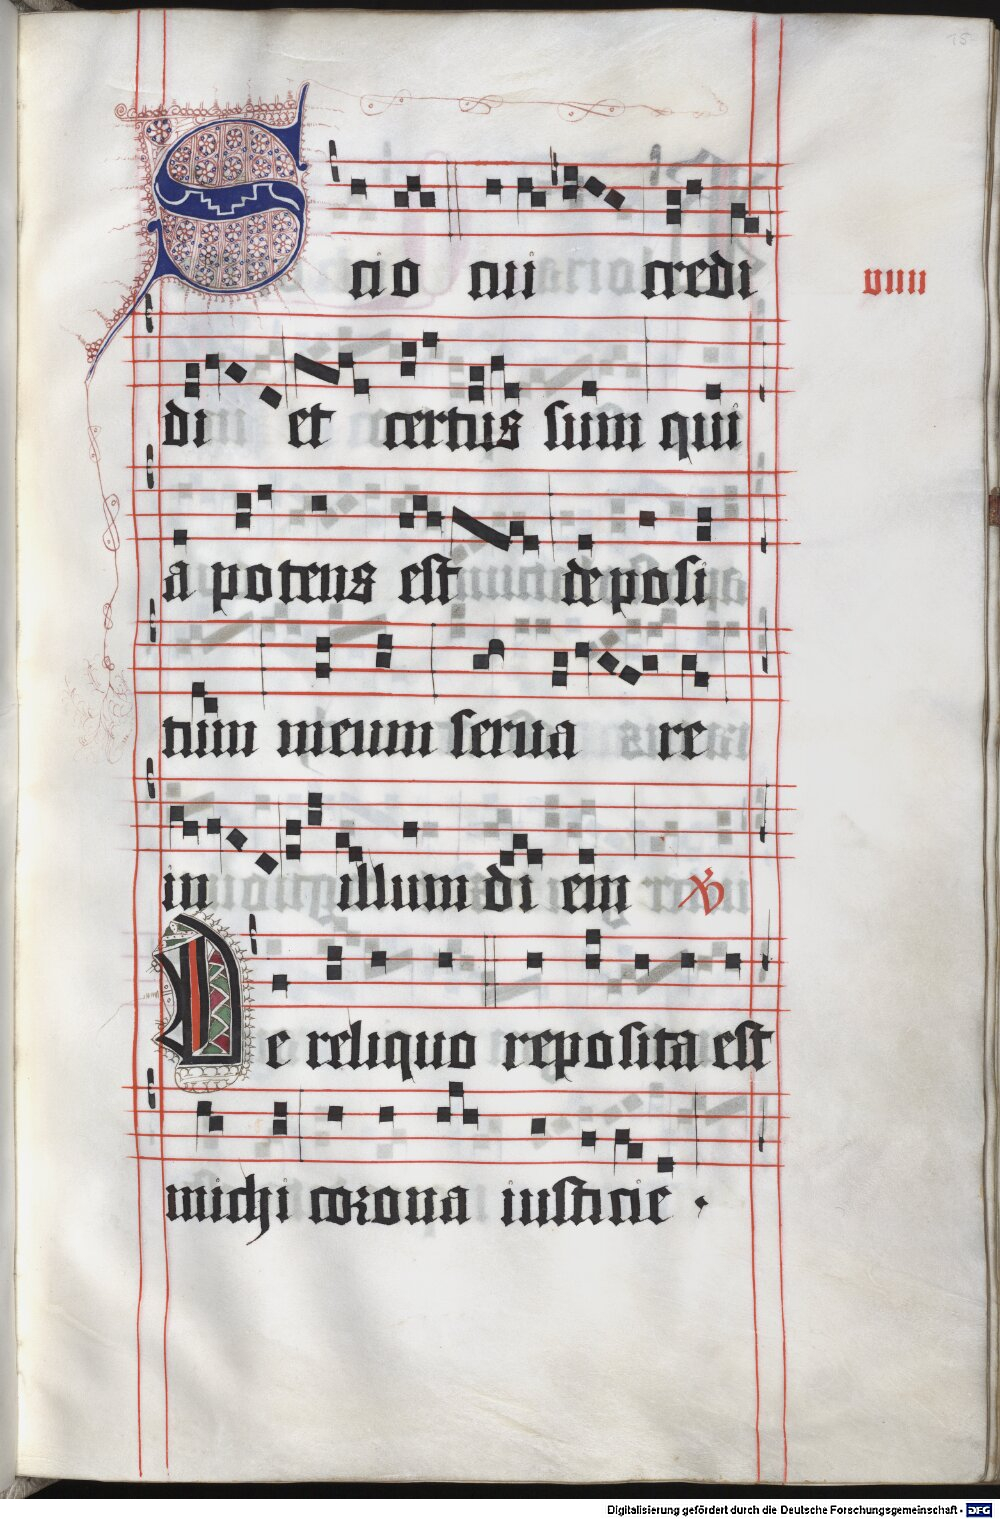 Scio cui credi
di et certus sum qui
a potens est deposi
tum meum serua re
in illum di em ℣
De reliquo reposita est
michi corona iusticie ·
viiii
15
Digitalisierung gefördert durch die Deutsche Forschungsgemeinschaft - DFG